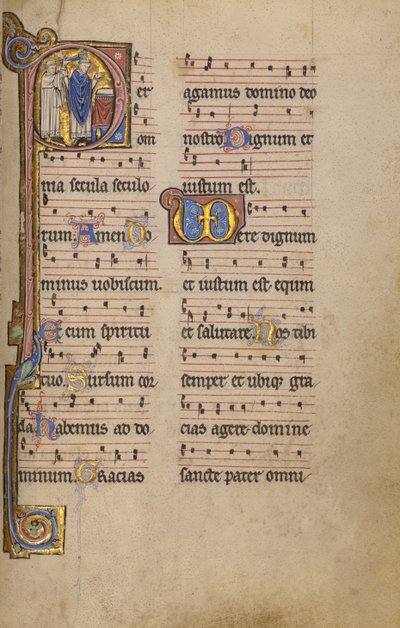 Per
om
nia secula seculo
rum Amen Do
minus uobiscum.
Et cum spiritu
tuo. Sursum cor
da habemus ad do
minum. Gracias
agamus domino deo
nostro Dignum et
iustum est.
Vere dignum
et iustum est equm
et salutare. Nos tibi
semper et ubiqꝫ gra
cias agere domine
sancte pater omni